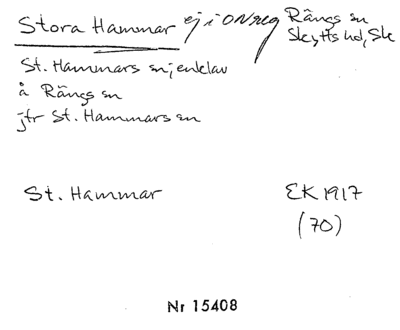 Stora Hammar ej i ONreg Rängs sn
Skytts hd, Sk
St. Hammars sn; enklav
å Rängs sn
jfr St. Hammars sn
St. Hammar EK 1917
(70)
Nr 15408